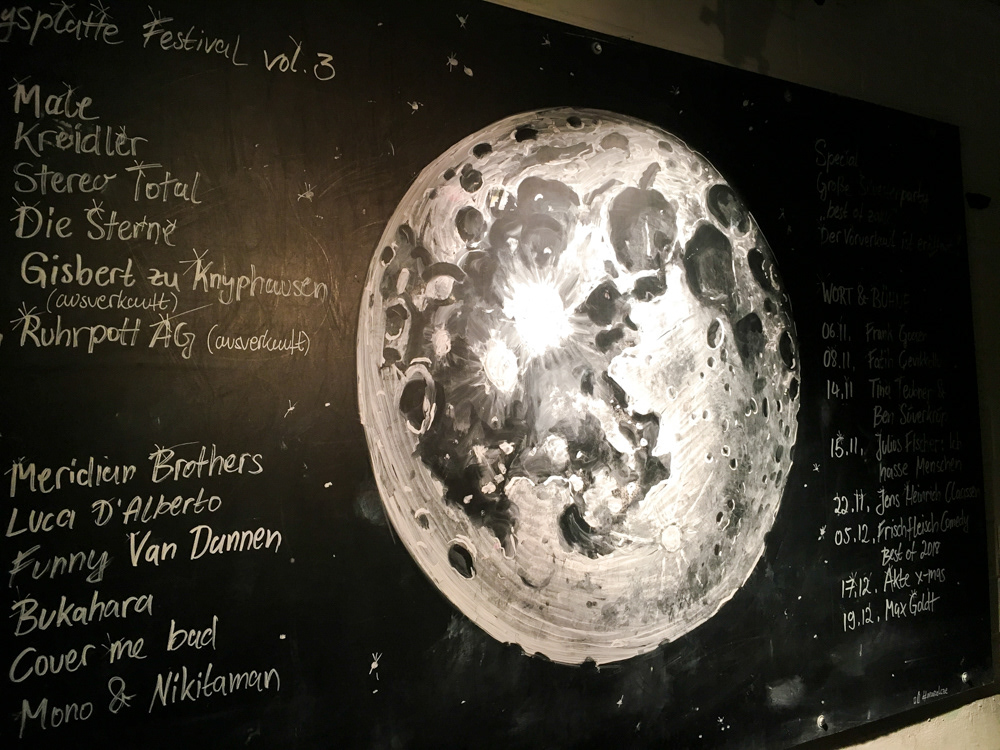 Festival vol. 3
Male
Kreidler
Stereo Total
Die Sterne
Gisbert zu Knyphausen
(ausverkauft)
Ruhrpott AG (ausverkauft)
Meridian Brothers
Luca D'Alberto
Funny Van Dannen
Bukahara
Cover me bad
Mono & Nikitaman
Special
Große
"best of
Der Vorverkauf ist
WORT &
06.11. Frank
08.11. Fatih
14.11 Tina &
Ben
15.11. Julius Fischer: Ich
hasse Menschen
22.11. Jens Heinrich Claassen
05.12. Frischfleisch Comedy
Best of 2018
17.12. Akte x-mas
19.12. Max Goldt